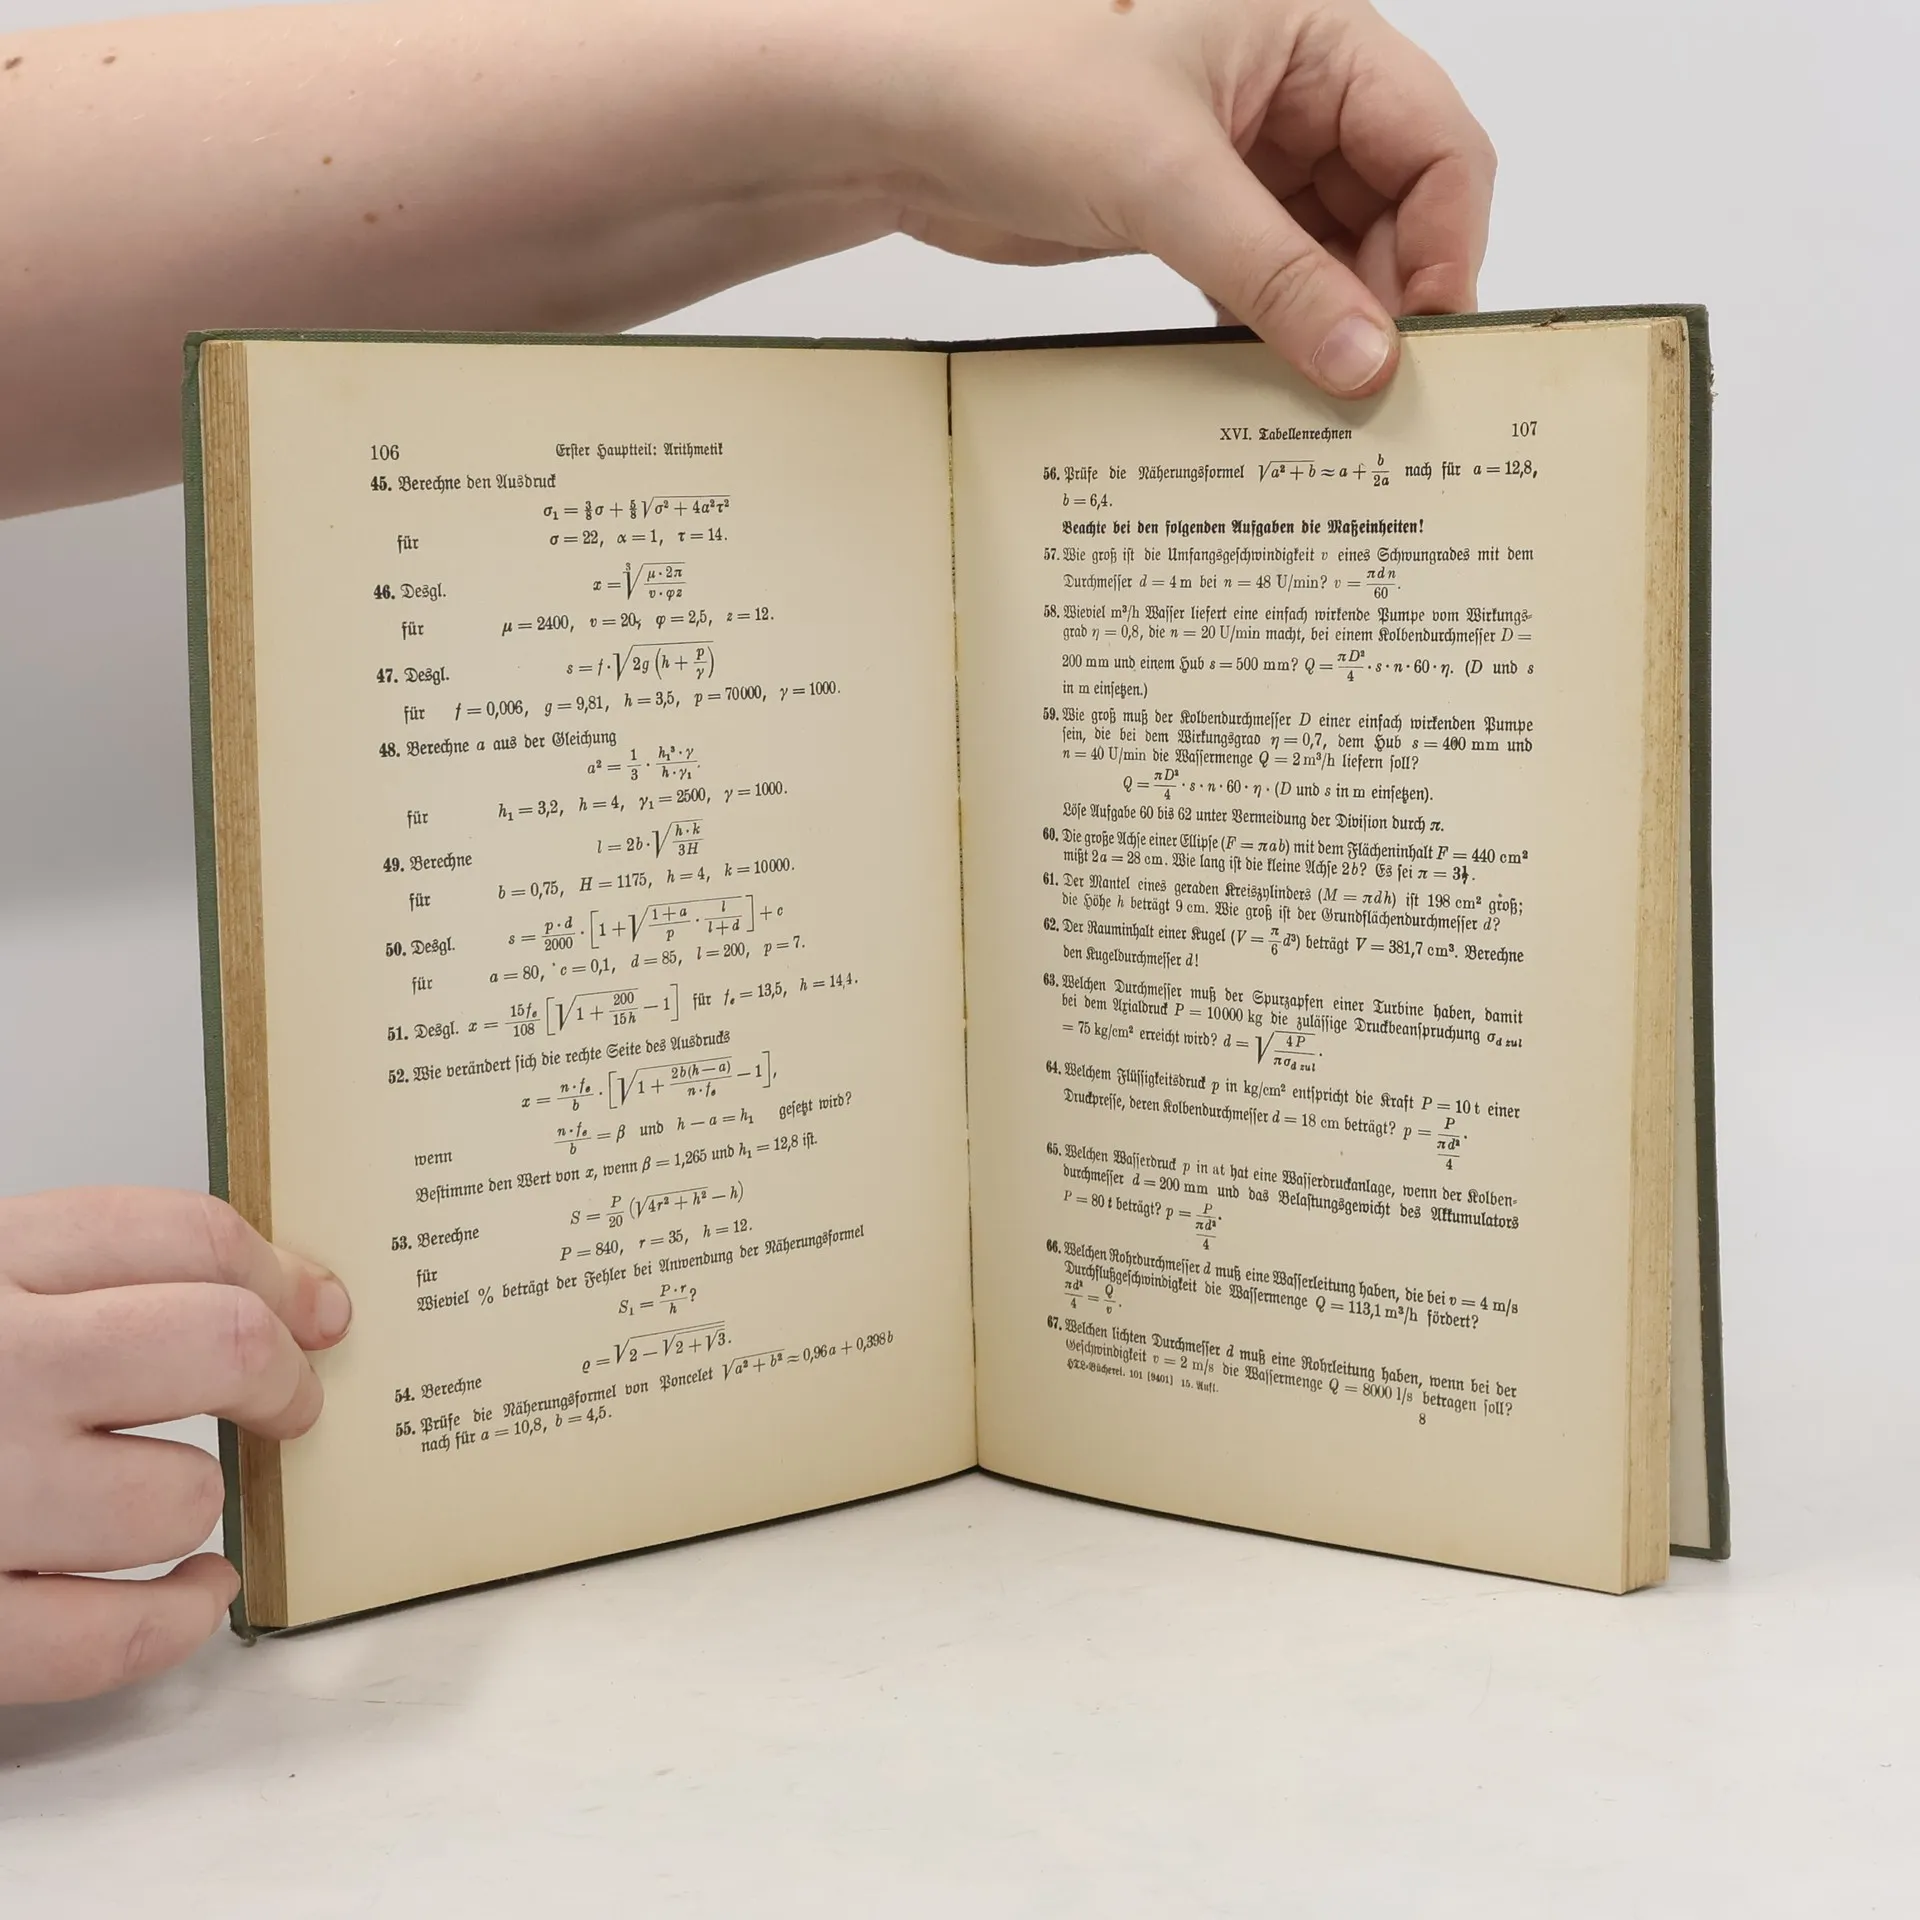 106 Erster Hauptteil: Arithmetik
45. Berechne den Ausdruck
σ₁ = ⅜σ + ⅝√(σ² + 4α²τ²)
für σ = 22, α = 1, τ = 14.
46. Desgl. x = ∛(μ · 2π / (v · φz))
für μ = 2400, v = 20; φ = 2,5, z = 12.
47. Desgl. s = f · √(2g (h + p/γ))
für f = 0,006, g = 9,81, h = 3,5, p = 70000, γ = 1000.
48. Berechne a aus der Gleichung
a² = 1/3 · h₁³ · γ / (h · γ₁).
für h₁ = 3,2, h = 4, γ₁ = 2500, γ = 1000.
49. Berechne l = 2b · √(h · k / 3H)
für b = 0,75, H = 1175, h = 4, k = 10000.
50. Desgl. s = p · d / 2000 · [1 + √((1 + a)/p · l/(l + d))] + c
für a = 80, c = 0,1, d = 85, l = 200, p = 7.
51. Desgl. x = 15fₑ/108 [√(1 + 200/15h) − 1] für fₑ = 13,5, h = 14,4.
52. Wie verändert sich die rechte Seite des Ausdrucks
x = n · fₑ / b · [√(1 + 2b(h − a) / (n · fₑ)) − 1],
wenn n · fₑ / b = β und h − a = h₁ gesetzt wird?
Bestimme den Wert von x, wenn β = 1,265 und h₁ = 12,8 ist.
53. Berechne S = P/20 (√(4r² + h²) − h)
für P = 840, r = 35, h = 12.
Wieviel % beträgt der Fehler bei Anwendung der Näherungsformel
S₁ = P · r / h?
54. Berechne ϱ = √(2 − √(2 + √3)).
55. Prüfe die Näherungsformel von Poncelet √(a² + b²) ≈ 0,96a + 0,398b
nach für a = 10,8, b = 4,5.
XVI. Tabellenrechnen 107
56. Prüfe die Näherungsformel √(a² + b) ≈ a + b/2a nach für a = 12,8,
b = 6,4.
Beachte bei den folgenden Aufgaben die Maßeinheiten!
57. Wie groß ist die Umfangsgeschwindigkeit v eines Schwungrades mit dem
Durchmesser d = 4 m bei n = 48 U/min? v = πdn/60.
58. Wieviel m³/h Wasser liefert eine einfach wirkende Pumpe vom Wirkungs-
grad η = 0,8, die n = 20 U/min macht, bei einem Kolbendurchmesser D =
200 mm und einem Hub s = 500 mm? Q = πD²/4 · s · n · 60 · η. (D und s
in m einsetzen.)
59. Wie groß muß der Kolbendurchmesser D einer einfach wirkenden Pumpe
sein, die bei dem Wirkungsgrad η = 0,7, dem Hub s = 400 mm und
n = 40 U/min die Wassermenge Q = 2 m³/h liefern soll?
Q = πD²/4 · s · n · 60 · η · (D und s in m einsetzen).
Löse Aufgabe 60 bis 62 unter Vermeidung der Division durch π.
60. Die große Achse einer Ellipse (F = πab) mit dem Flächeninhalt F = 440 cm²
mißt 2a = 28 cm. Wie lang ist die kleine Achse 2b? Es sei π = 3⅐.
61. Der Mantel eines geraden Kreiszylinders (M = πdh) ist 198 cm² groß;
die Höhe h beträgt 9 cm. Wie groß ist der Grundflächendurchmesser d?
62. Der Rauminhalt einer Kugel (V = π/6 d³) beträgt V = 381,7 cm³. Berechne
den Kugeldurchmesser d!
63. Welchen Durchmesser muß der Spurzapfen einer Turbine haben, damit
bei dem Axialdruck P = 10000 kg die zulässige Druckbeanspruchung σd zul
= 75 kg/cm² erreicht wird? d = √(4P / πσd zul).
64. Welchem Flüssigkeitsdruck p in kg/cm² entspricht die Kraft P = 10 t einer
Druckpresse, deren Kolbendurchmesser d = 18 cm beträgt? p = P / (πd²/4).
65. Welchen Wasserdruck p in at hat eine Wasserdruckanlage, wenn der Kolben-
durchmesser d = 200 mm und das Belastungsgewicht des Akkumulators
P = 80 t beträgt? p = P / (πd²/4).
66. Welchen Rohrdurchmesser d muß eine Wasserleitung haben, die bei v = 4 m/s
Durchflußgeschwindigkeit die Wassermenge Q = 113,1 m³/h fördert?
πd²/4 = Q/v.
67. Welchen lichten Durchmesser d muß eine Rohrleitung haben, wenn bei der
Geschwindigkeit v = 2 m/s die Wassermenge Q = 8000 l/s betragen soll?
HTL-Bücherei. 101 [9401] 15. Aufl. 8